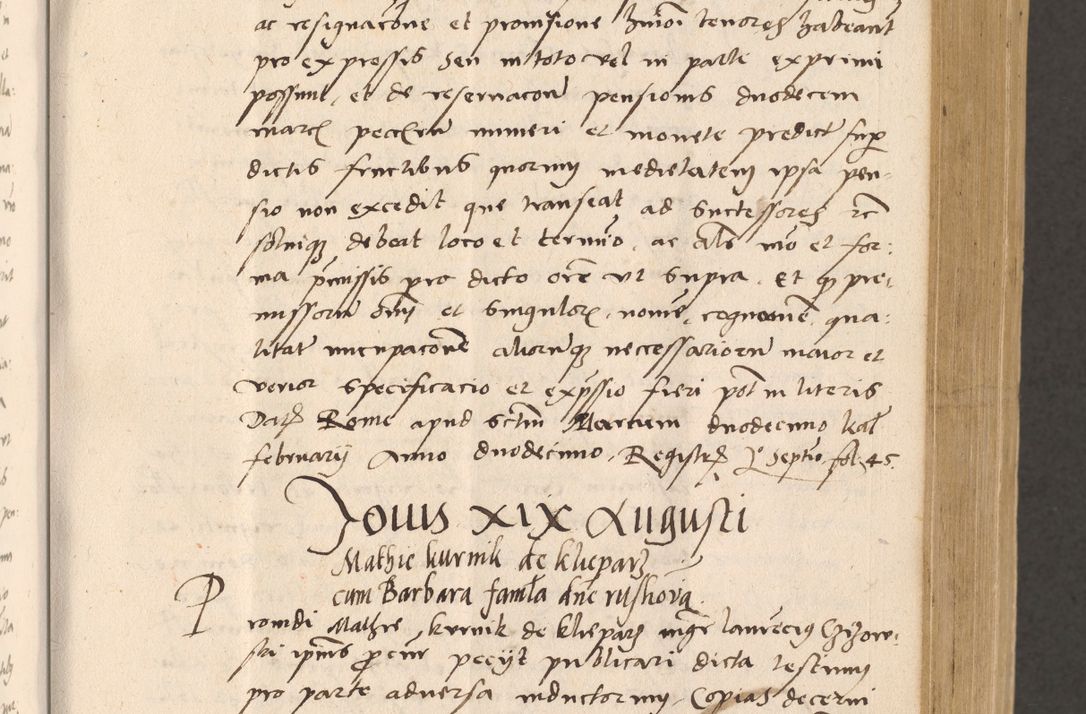 ac resignacõne et provisione hmõi tenores habeant
pro expressis seu in toto vel in parte exprimi
possint, et de reservacoñ pensionis duodecem
marcɿ pecuñ numeri et monete predict sup
dictis fructibus quorum medietatem ipsa pen-
sio non excedit que transeat ad successores ꝛc
solvique debeat loco et termino, ac als mo et for-
ma pmissis pro dicto ore ut supra. Et q pre-
missorum oim et singulor. nome, cognome, qua-
litat nuncupacone aliorumque neccessariorum maior et
verior specificacio et expssio fieri pot in literis
Dat Rome apud sctm Marcum duodecimo kal
february Anno duodecimo. Registr Septio fol. 45.
Jovis XIX Augusti
Mathie kurnik de klieparz
cum Barbara famla dne
P romdi Mathie kurnik de klieparz mgr laurecius Czizow-
ski ipius pcur peciit publicari dicta testium
pro parte adversa inductorum, Copias decerni